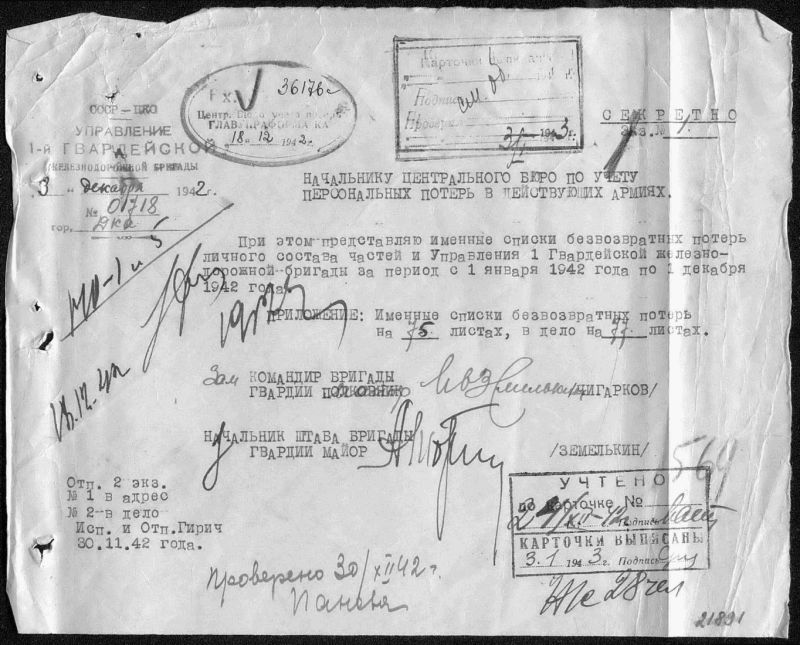 СССР-НКО
УПРАВЛЕНИЕ
1-й ГВАРДЕЙСКОЙ
ЖЕЛЕЗНОДОРОЖНОЙ БРИГАДЫ
3 " декабря 1942г.
№ 01718
гор.
Вх. 36176с
Центр. Бюро учета потерь
18. 12 1942г.
Карточки выписаны
Подпись
3/I 1943г.
СЕКРЕТНО
Экз. № 1.
НАЧАЛЬНИКУ ЦЕНТРАЛЬНОГО БЮРО ПО УЧЕТУ
ПЕРСОНАЛЬНЫХ ПОТЕРЬ В ДЕЙСТВУЮЩИХ АРМИЯХ.
При этом представляю именные списки безвозвратных потерь
личного состава частей и Управления 1 Гвардейской железно-
дорожной бригады за период с 1 января 1942 года по 1 декабря
1942 года.
ПРИЛОЖЕНИЕ: Именные списки безвозвратных потерь
на 75 листах, в дело на 77 листах.
18.12.42
Зам КОМАНДИР БРИГАДЫ
ГВАРДИИ ПОЛКОВНИК /ЧИГАРКОВ/
НАЧАЛЬНИК ШТАБА БРИГАДЫ
ГВАРДИИ МАЙОР /ЗЕМЕЛЬКИН/
1569
Отп. 2 экз.
№ 1 в адрес
№ 2-в дело
Исп. и Отп.Гирич
30.11.42 года.
УЧТЕНО
по карточке №
Подпись
КАРТОЧКИ ВЫПИСАНЫ
3.1 1943г. Подпись
проверено 30/XII 42г.
28 чел
21891